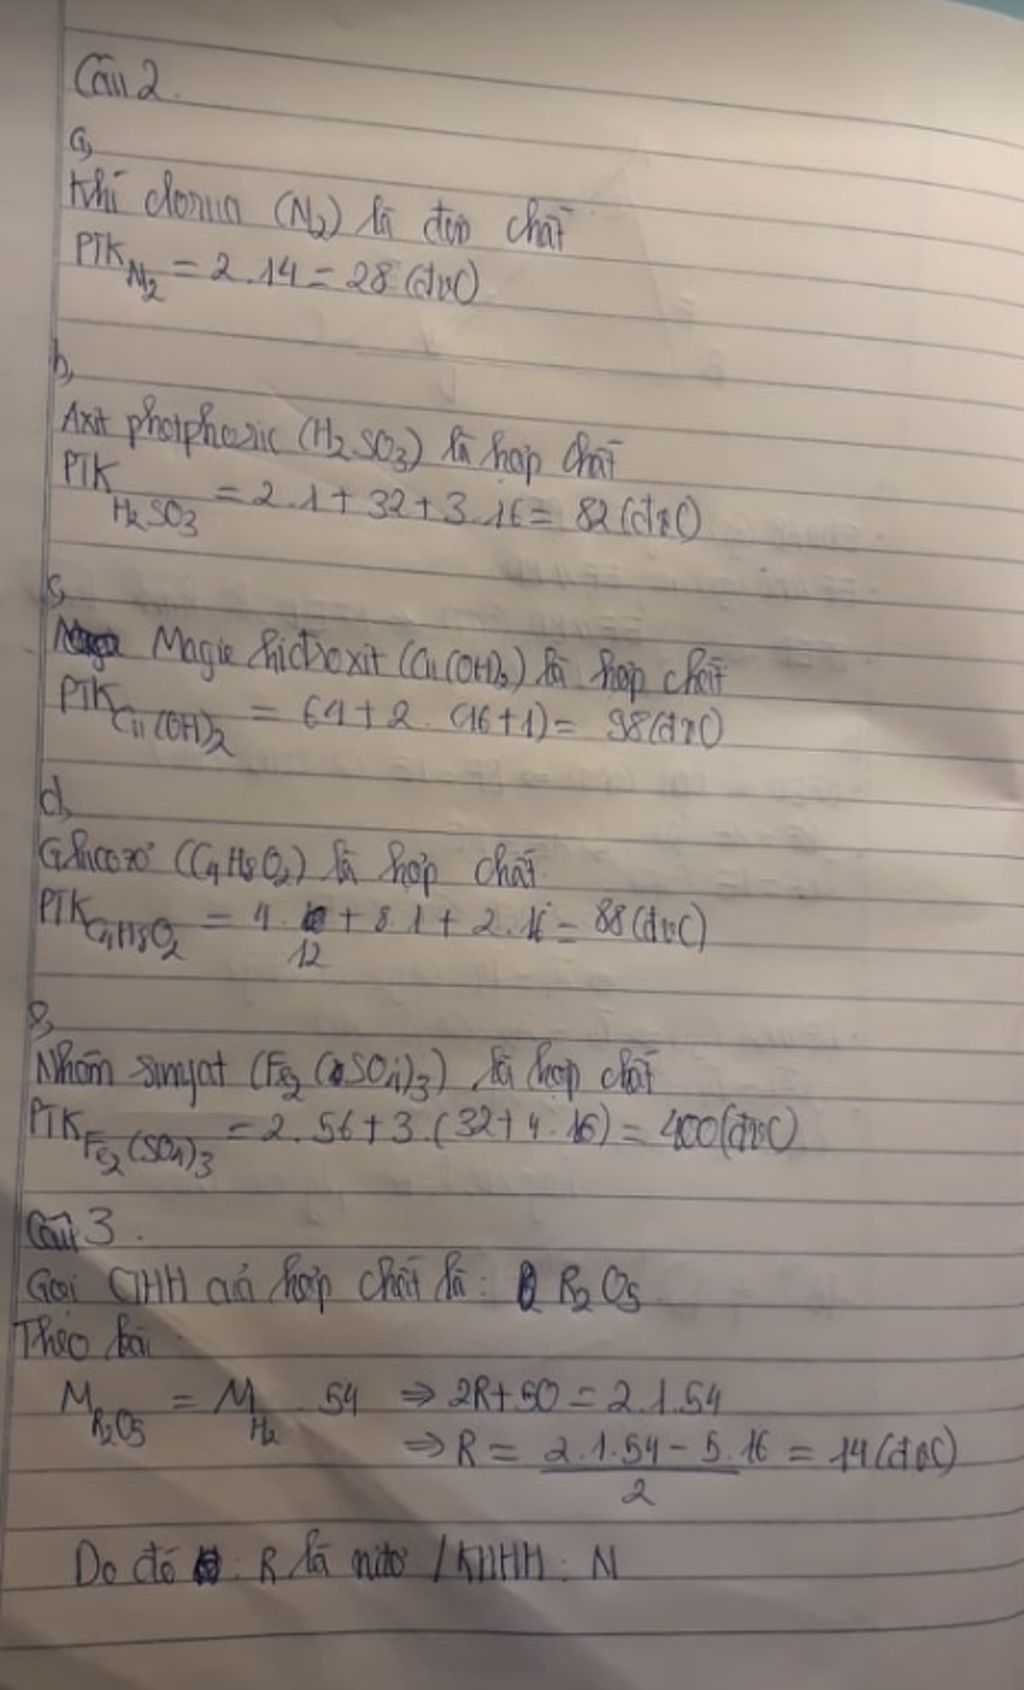 Câu 2.
a,
Khí clorua (N₂) là đơn chất
PTK N₂ = 2.14 = 28 (đvC)
b,
Axit photphoric (H₂SO₃) là hợp chất
PTK H₂SO₃ = 2.1 + 32 + 3.16 = 82 (đvC)
Magie hidroxit (Cu(OH)₂) là hợp chất
PTK Cu(OH)₂ = 64 + 2. (16+1) = 98 (đvC)
d,
Glucozơ (C₄H₈O₂) là hợp chất
PTK C₄H₈O₂ = 4. 12 + 8.1 + 2.16 = 88 (đvC)
Nhôm sunfat (Fe₂(SO₄)₃) là hợp chất
PTK Fe₂(SO₄)₃ = 2.56 + 3.(32+4.16) = 400 (đvC)
Câu 3.
Gọi CTHH của hợp chất là: R₂O₅
Theo bài
M R₂O₅ = M H₂ . 54 ⇒ 2R + 5O = 2.1.54
⇒ R = (2.1.54 - 5.16)/2 = 14 (đvC)
Do đó : R là nitơ / KHHH : N